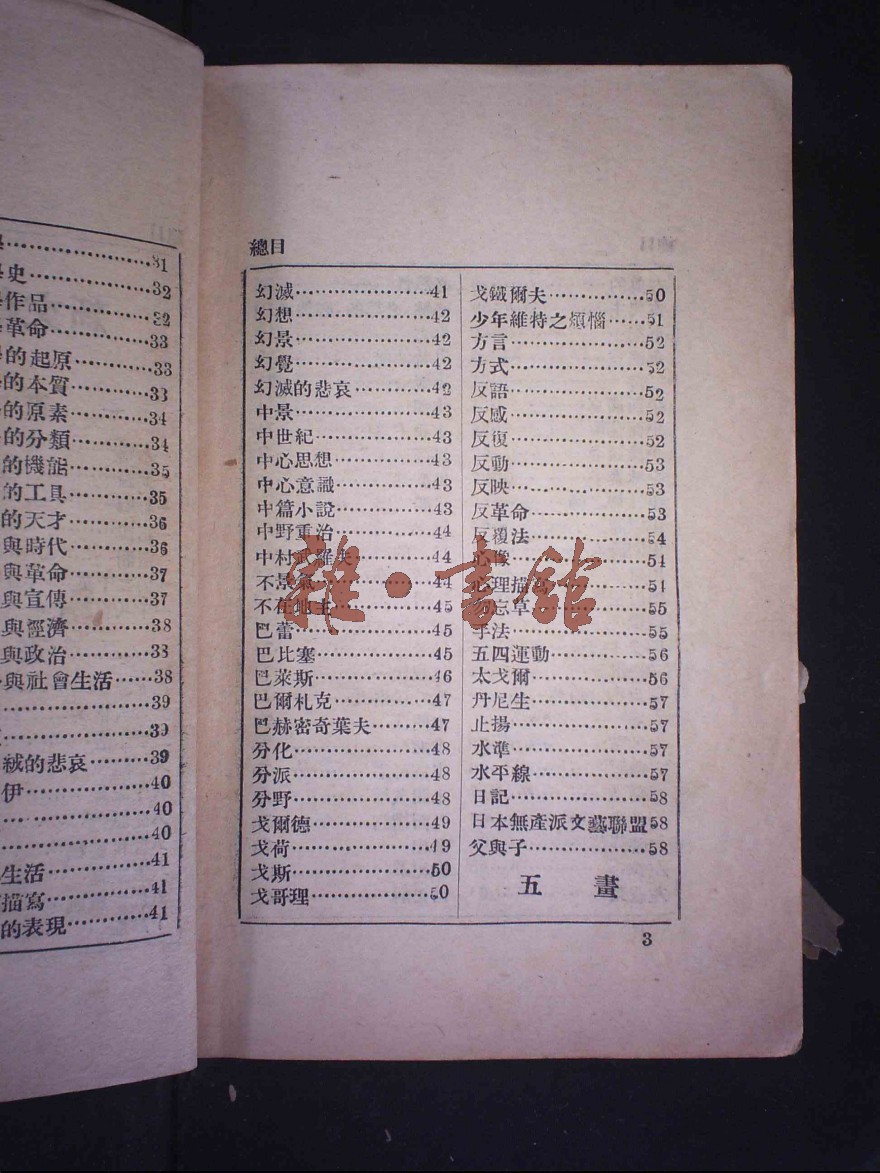 31
史……………32
作品…………32
革命…………33
的起原………33
的本質………33
的原素………34
的分類………34
的機能………35
的工具………35
的天才………36
與時代………36
與革命………37
與宣傳………37
與經濟………38
與政治………38
與社會生活……38
39
39
絨的悲哀………39
伊……………40
40
40
生活…………41
描寫…………41
的表現………41
總目
幻滅……………41
幻想……………42
幻景……………42
幻覺……………42
幻滅的悲哀………42
中景……………43
中世紀…………43
中心思想………43
中心意識………43
中篇小說………43
中野重治………44
中村武羅夫………44
不景氣…………44
不在地主………45
巴蕾……………45
巴比塞…………45
巴萊斯…………46
巴爾札克………47
巴赫密奇葉夫………47
分化……………48
分派……………48
分野……………48
戈爾德…………49
戈荷……………49
戈斯……………50
戈哥理…………50
戈鐵爾夫…………50
少年維持之煩惱……51
方言……………52
方式……………52
反語……………52
反感……………52
反復……………52
反動……………53
反映……………53
反革命…………53
反覆法…………54
心像……………54
心理描寫………54
忘草…………55
手法……………55
五四運動………56
太戈爾…………56
丹尼生…………57
止揚……………57
水準……………57
水平線…………57
日記……………58
日本無產派文藝聯盟58
父與子…………58
五 畫
3
雜·書館